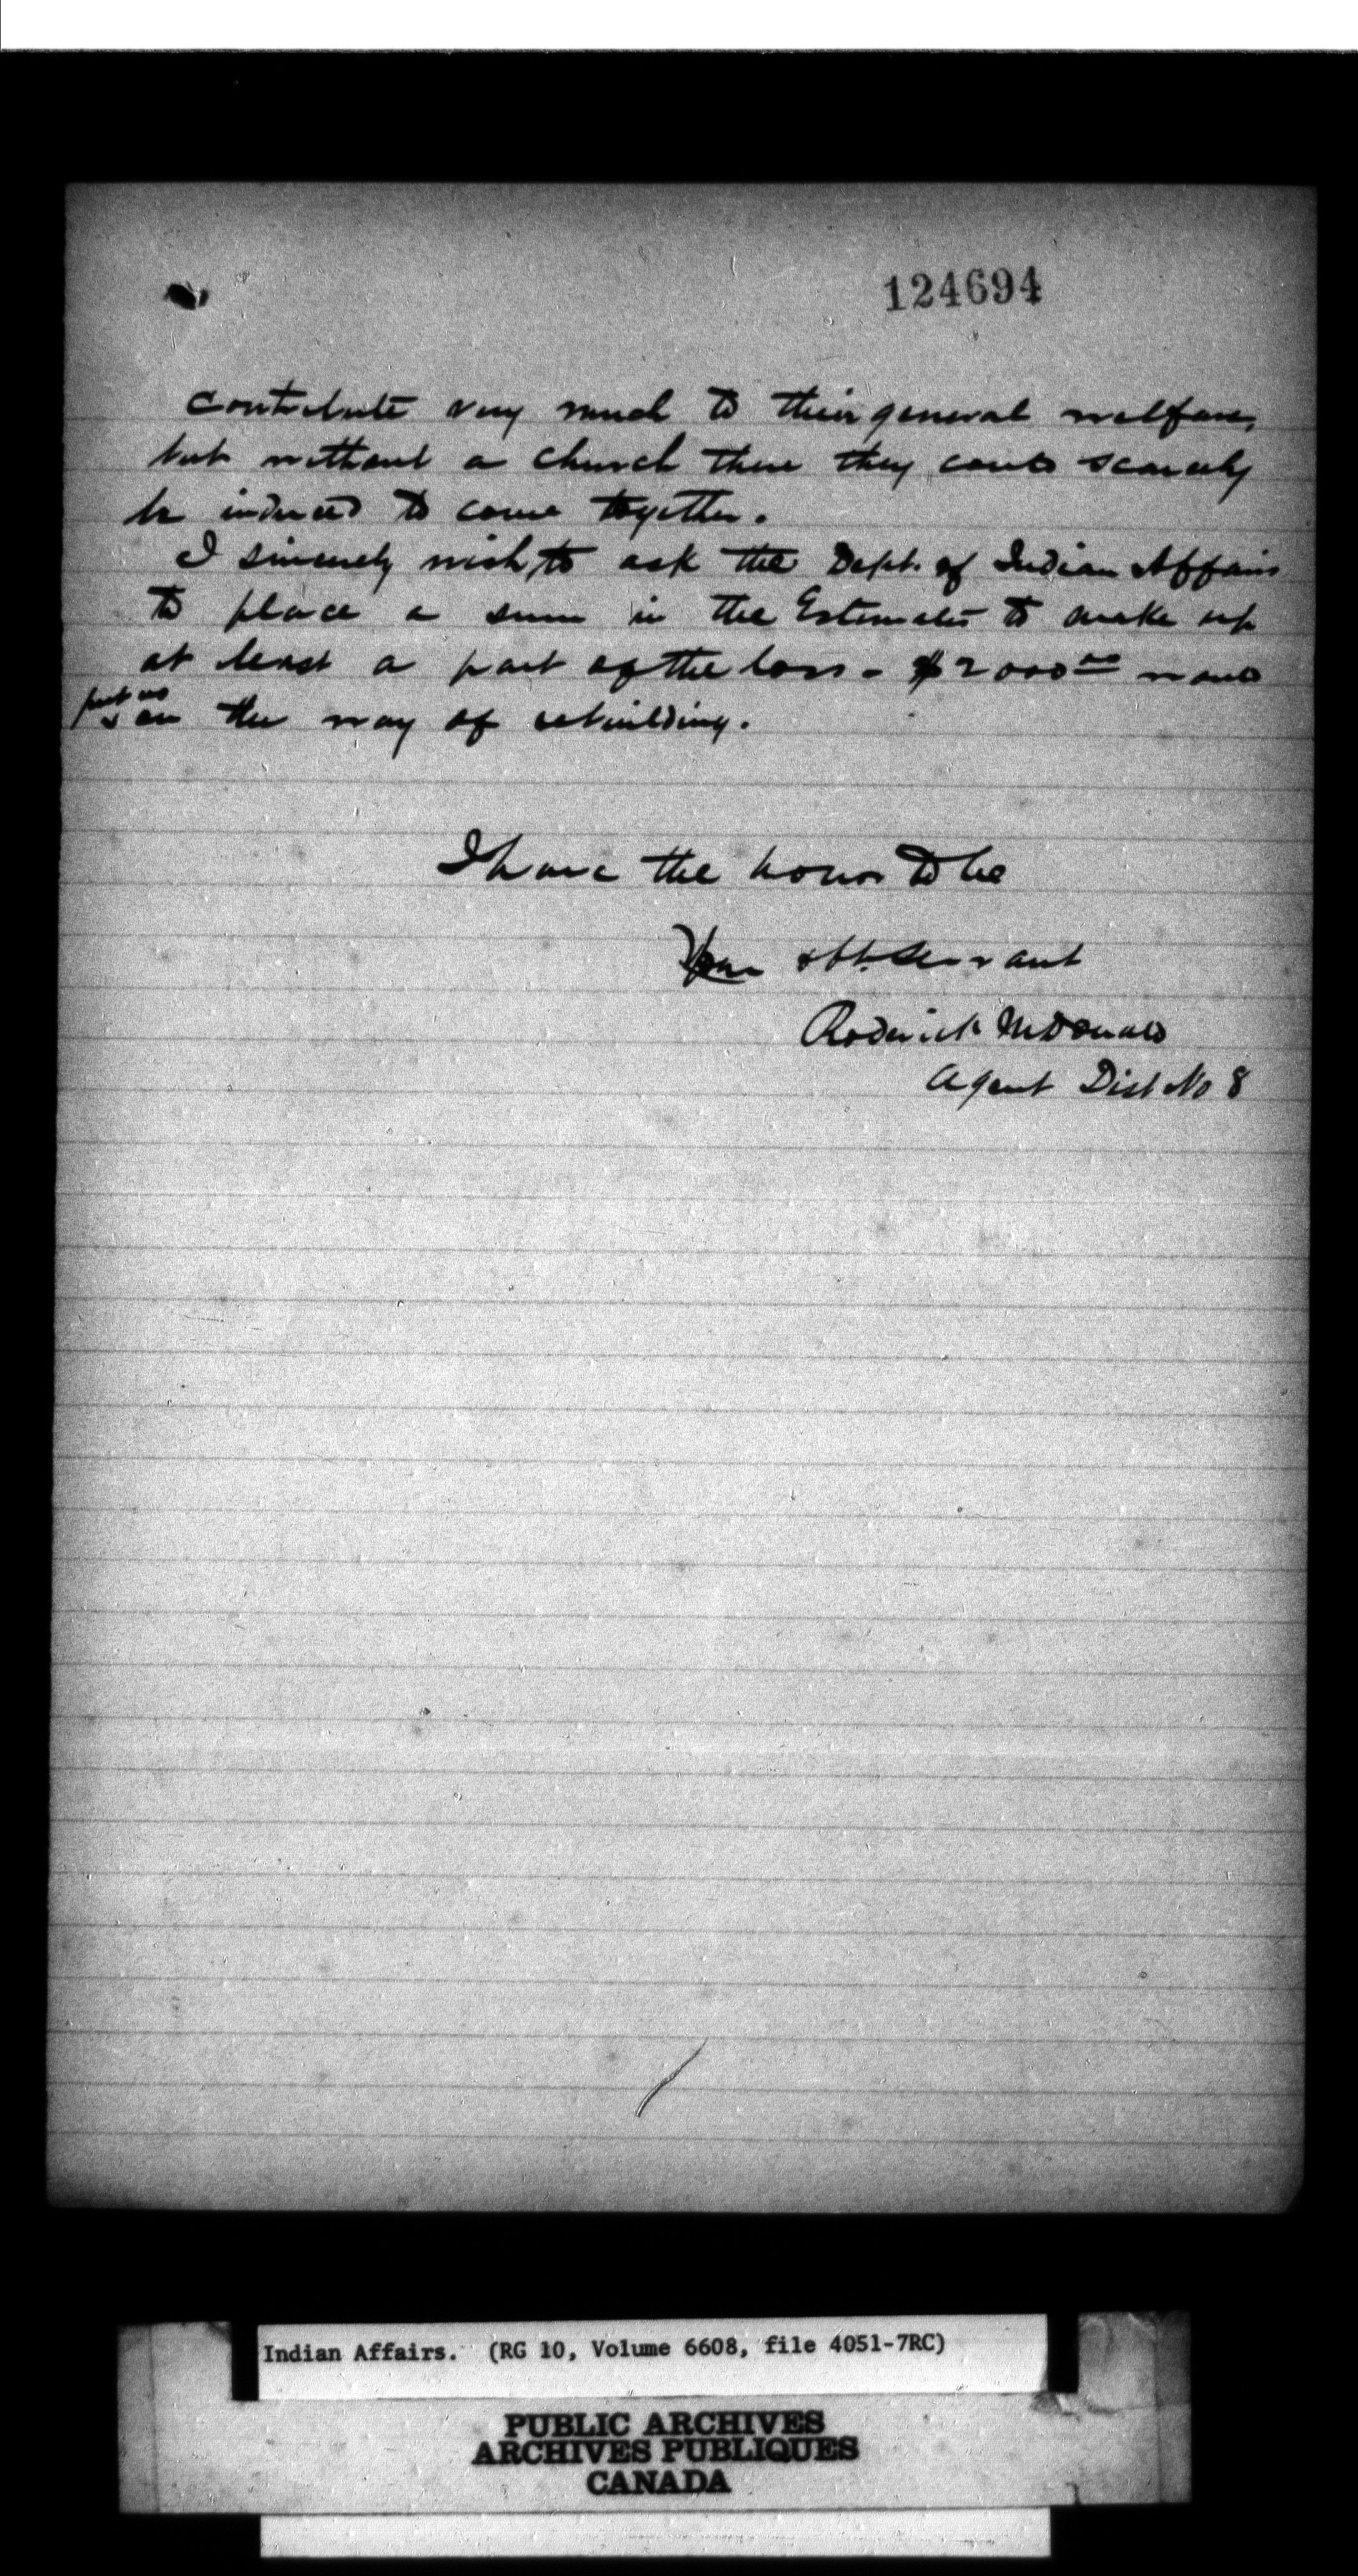 124694
contribute very much to their general welfare,
but without a church there they could scarcely
be induced to come together.
I sincerely wish to ask the Dept. of Indian Affairs
to place a sum in the Estimates to make up
at least a part of the loss - $2000.00 would
put us on the way of rebuilding.
I have the honor to be
Your obt. Servant
Roderick McDonald
Agent Dist No 8
Indian Affairs. (RG 10, Volume 6608, file 4051-7RC)
PUBLIC ARCHIVES
ARCHIVES PUBLIQUES
CANADA